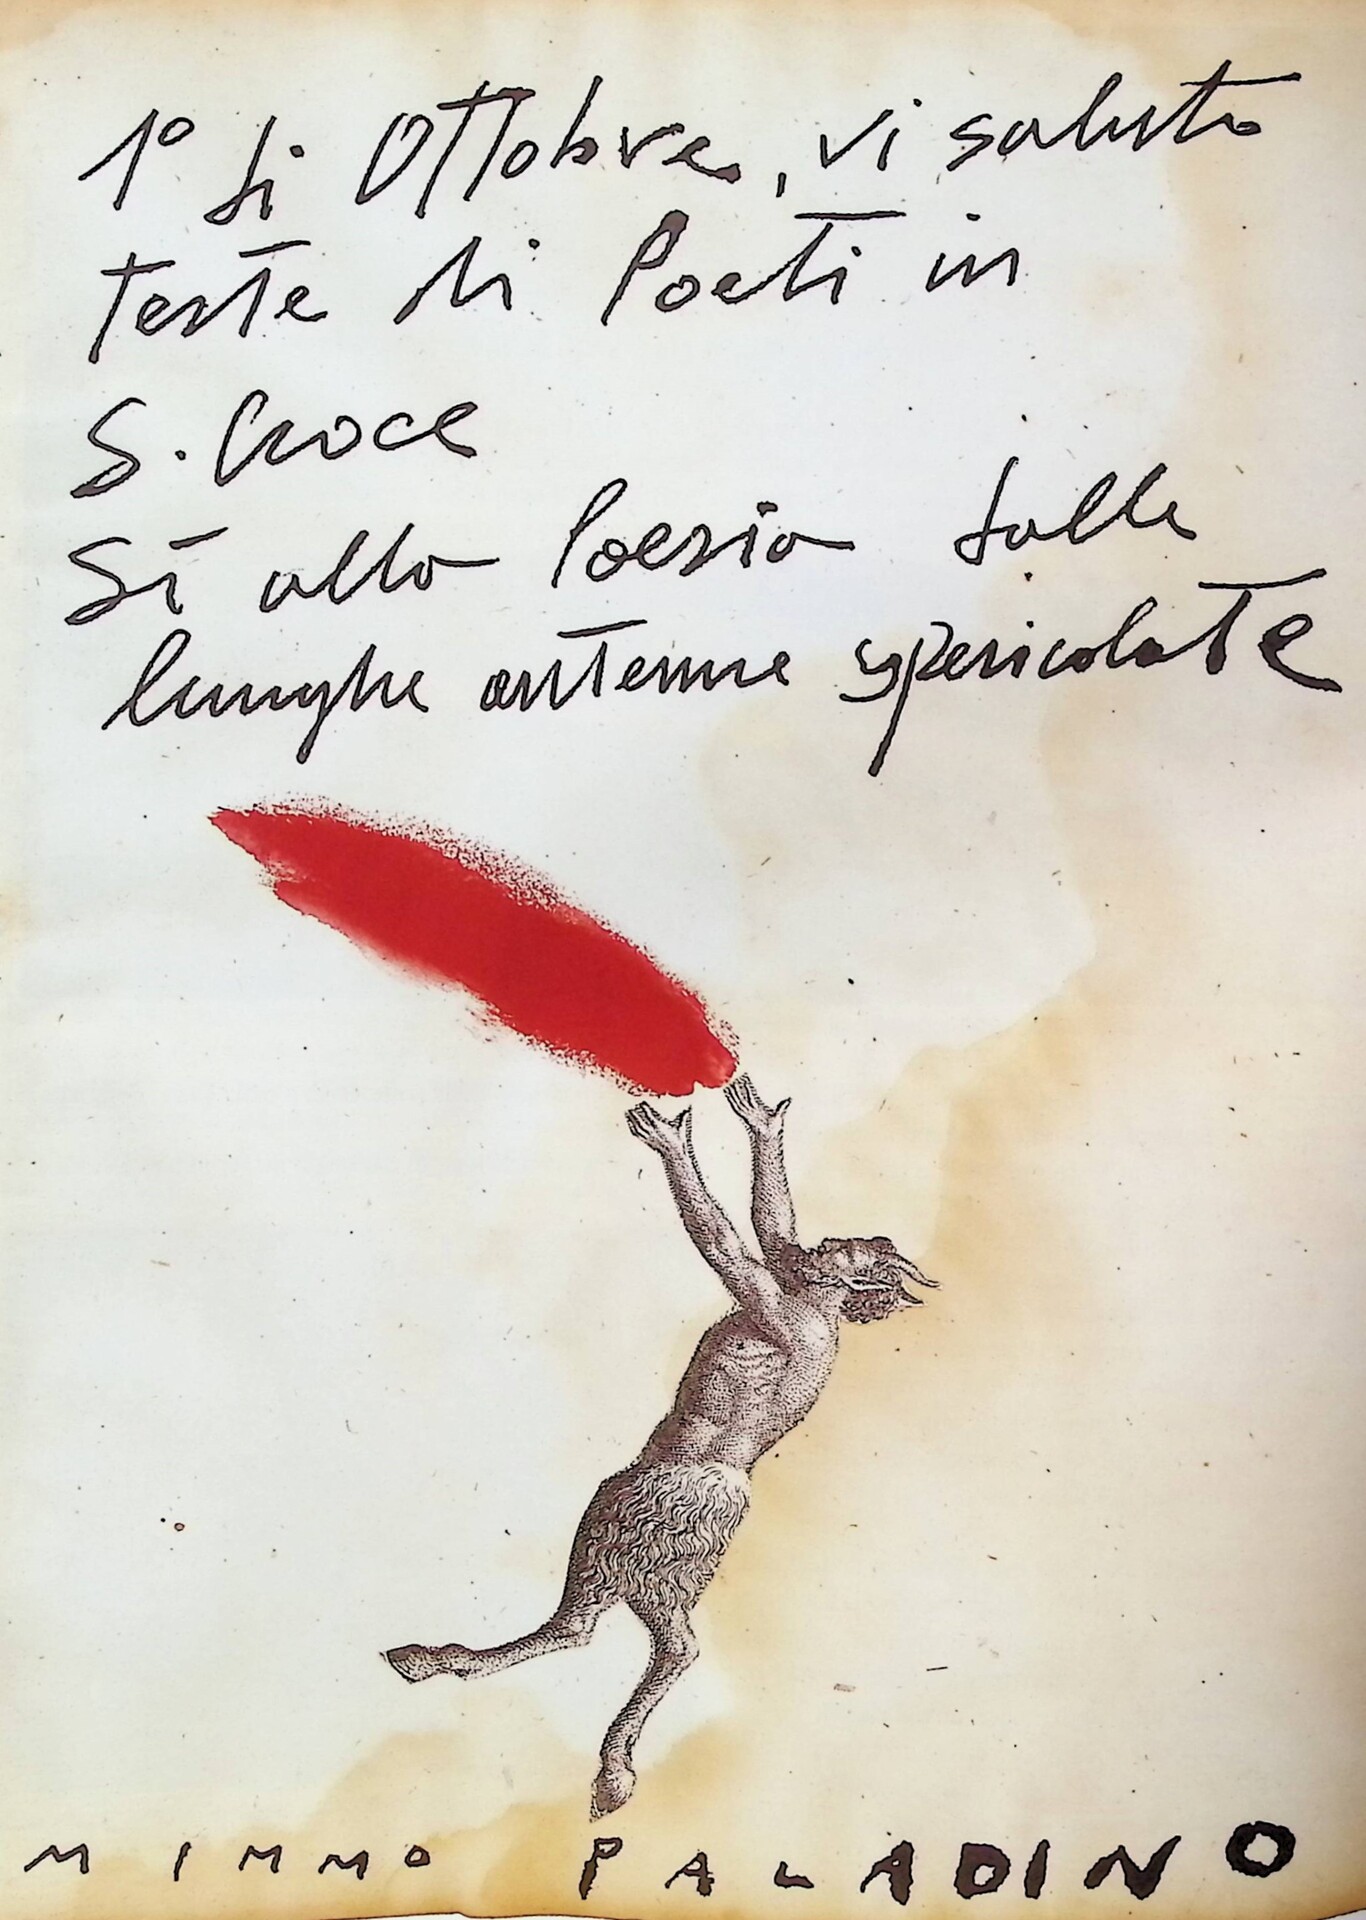 1° di Ottobre, vi saluto
teste di Poeti in
S. Croce
Sì alla Poesia dalle
lunghe antenne spericolate
MIMMO PALADINO